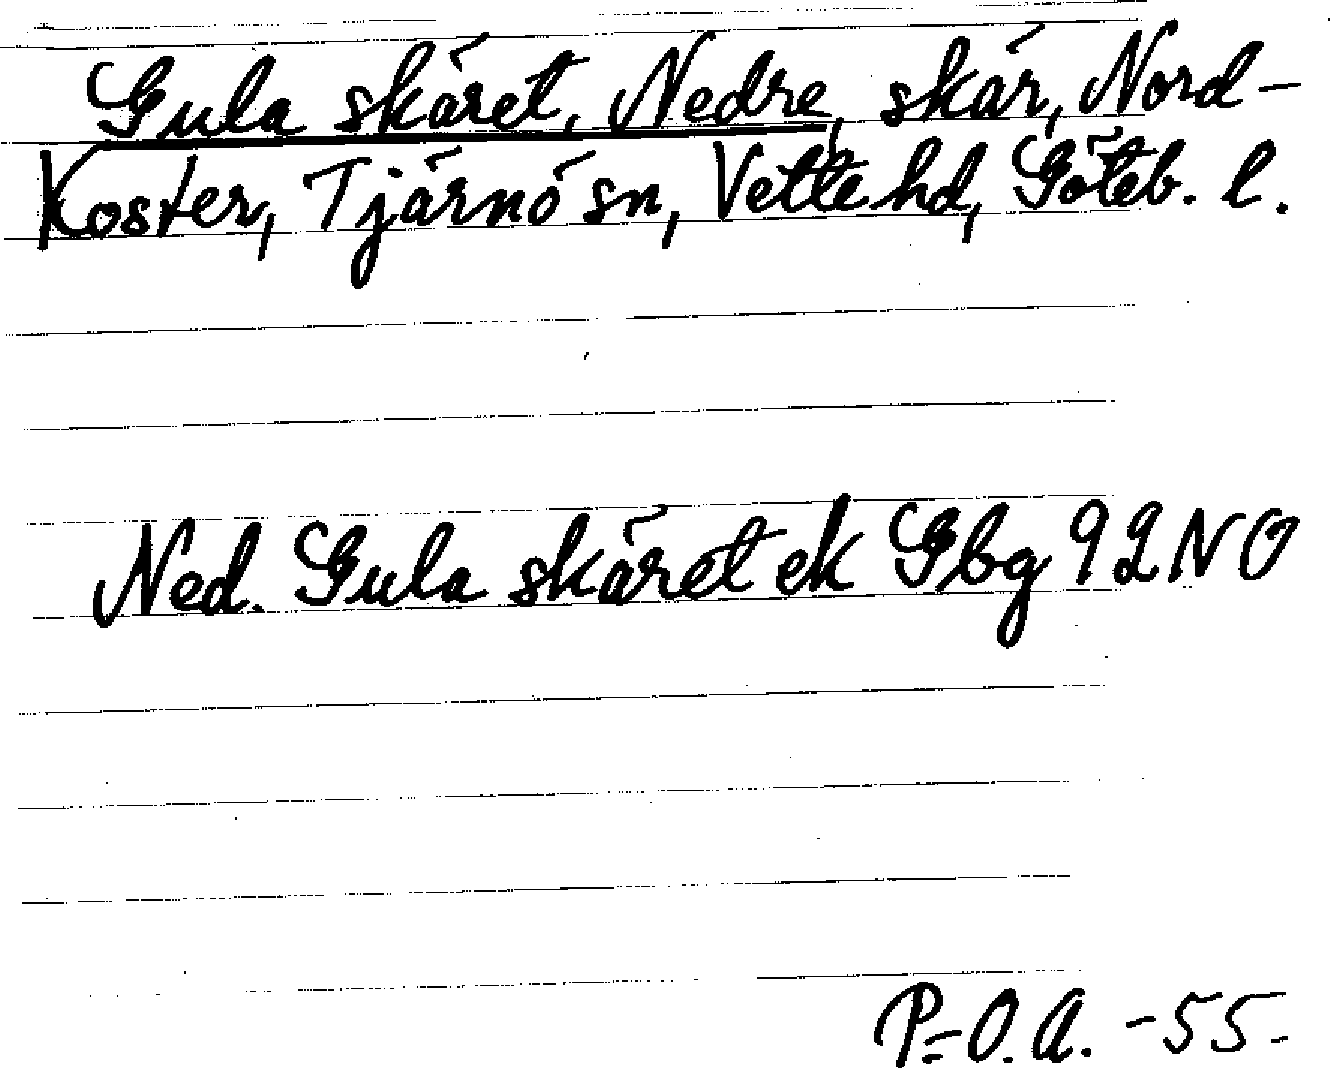 Gula skäret, Nedre, skär, Nord-
Koster, Tjärnö sn, Vette hd, Göteb. l.
Ned. Gula skäret ek Gbg 92 NO
P=O.A. -55-